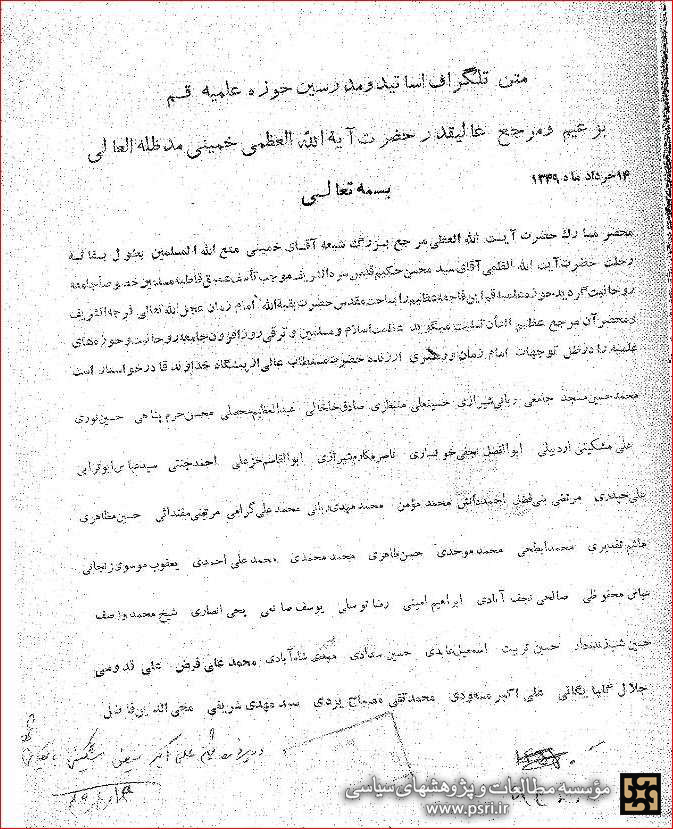 متن تلگراف اساتید و مدرسین حوزه علمیه قم
بزعیم و مرجع عالیقدر حضرت آیة الله العظمی خمینی مدظله العالی
۱۴ خرداد ماه ۱۳۴۹
بسمه تعالی
محضر مبارك حضرت آیت الله العظمی مرجع بزرگ شیعه آقای خمینی متع الله المسلمین بطول بقائه
رحلت حضرت آیت الله العظمی آقای سید محسن حکیم قدس سره الشریف موجب تأسف عمیق قاطبه مسلمین خصوصا جامعه
روحانیت گردید حوزه علمیه قم این فاجعه عظیم را بساحت مقدس حضرت بقیة الله امام زمان عجل الله تعالی فرجه الشریف
و محضر آن مرجع عظیم الشأن تسلیت میگوید عظمت اسلام و مسلمین و ترقی روزافزون جامعه روحانیت و حوزه های
علمیه را در ظل توجهات امام زمان و رهبری ارزنده حضرت مستطاب عالی از پیشگاه خداوند قادر خواستار است
محمد حسین مسجد جامعی ربانی شیرازی حسینعلی منتظری صادق خلخالی عبدالعظیم محصلی محسن حرم پناهی حسین نوری
علی مشکینی اردبیلی ابوالفضل نجفی خوانساری ناصر مکارم شیرازی ابوالقاسم خزعلی احمد جنتی سید عباس ابوترابی
علی حیدری مرتضی بنی فضل احمد دانش محمد مؤمن محمد مهدی ربانی محمد علی گرامی مرتضی مقتدائی حسین مظاهری
هاشم تقدیری محمد ابطحی محمد موحدی حسن طاهری محمد محمدی محمد علی احمدی یعقوب موسوی زنجانی
عباس محفوظی صالحی نجف آبادی ابراهیم امینی رضا توسلی یوسف صانعی یحیی انصاری شیخ محمد واصف
حسین شب زنده دار حسین تربت اسمعیل عابدی حسین سعادی مهدی شاه آبادی محمد علی فرض علی قدوسی
جلال گلپایگانی علی اکبر مسعودی محمد تقی مصباح یزدی سید مهدی شریفی محی الدین فاضل
مؤسسه مطالعات و پژوهشهای سیاسی
www.psri.ir